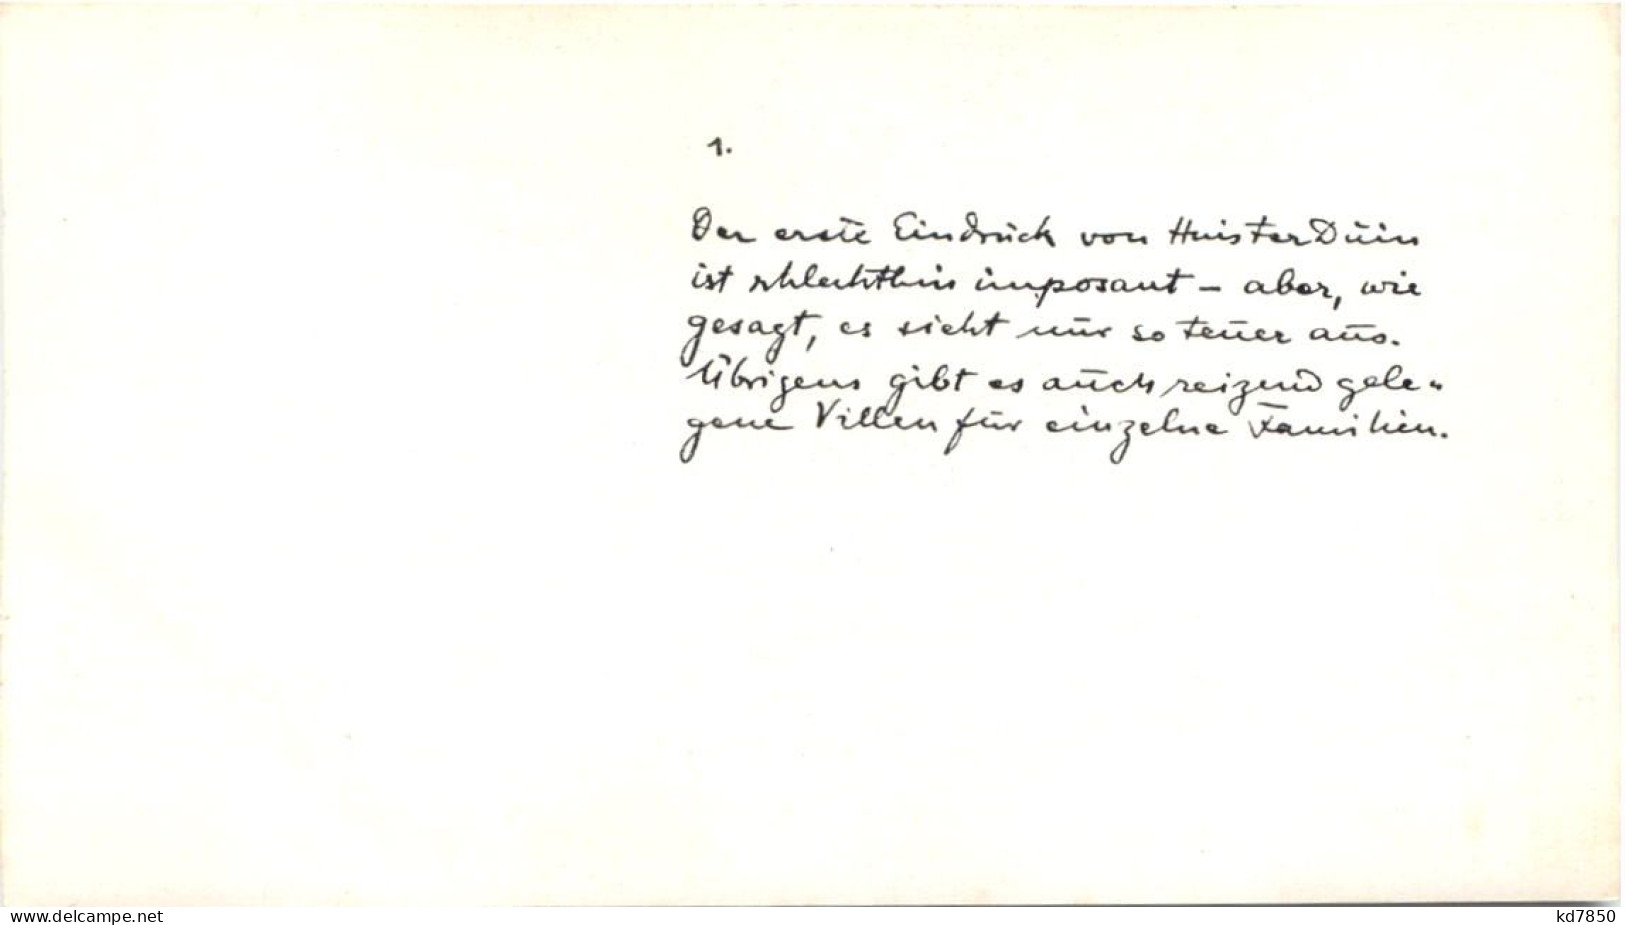 1.
Der erste Eindruck von Huis ter Duin
ist schlechthin imposant – aber, wie
gesagt, es sieht nur so teuer aus.
Übrigens gibt es auch reizend gele-
gene Villen für einzelne Familien.
www.delcampe.net
kd7850